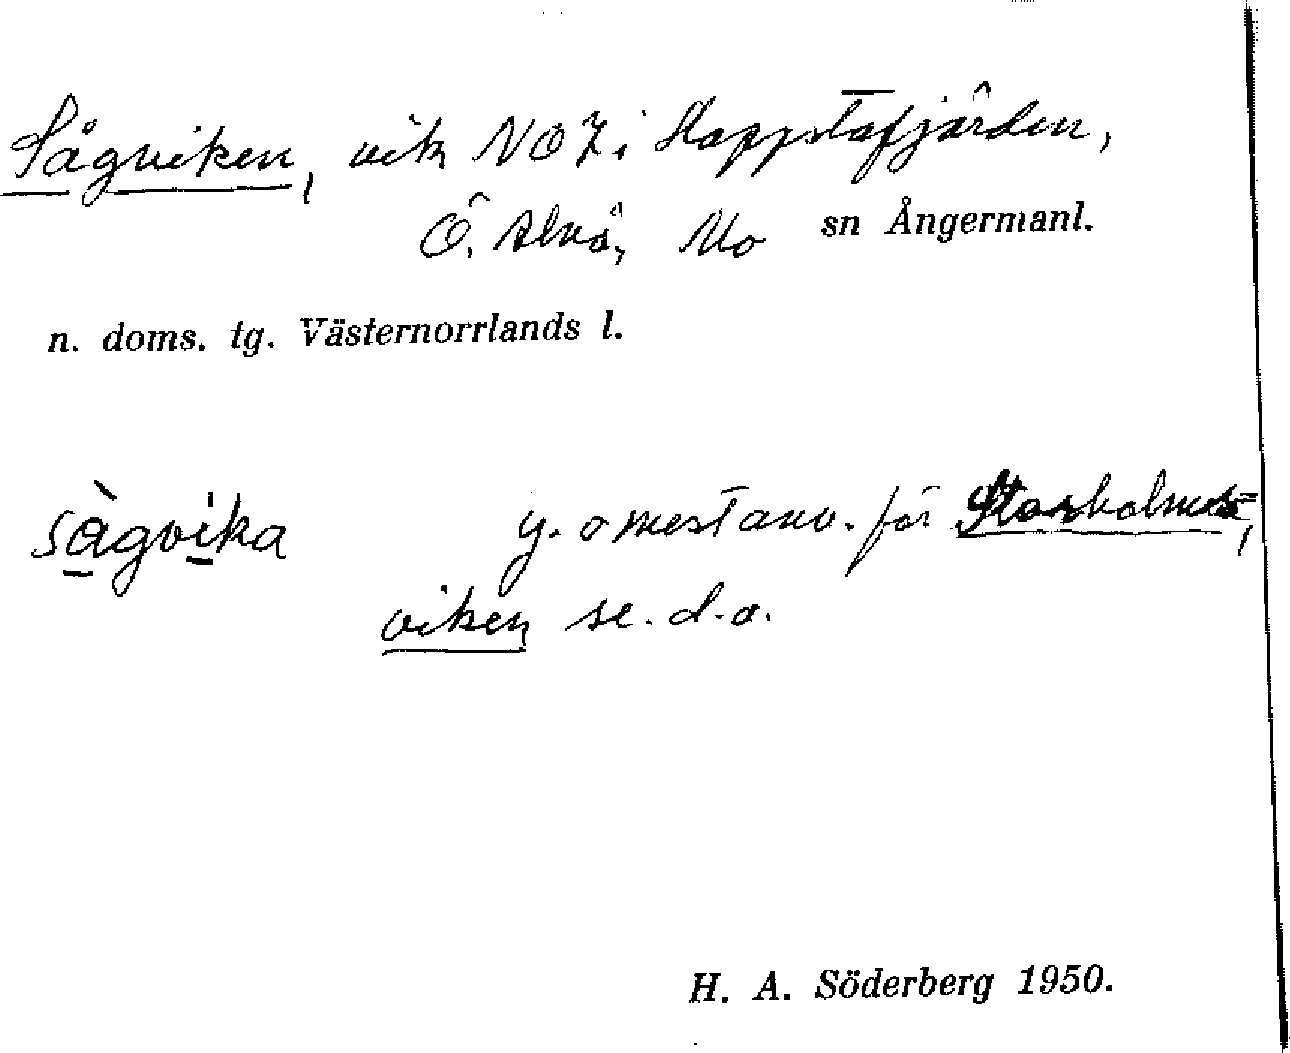 Sågviken, vik NO Z i Happstafjärden,
Ö. Alnä, Mo sn Ångermanl.
n. doms. tg. Västernorrlands l.
sàgvika y. o mest anv. för Storholms-
viken se. d.o.
H. A. Söderberg 1950.